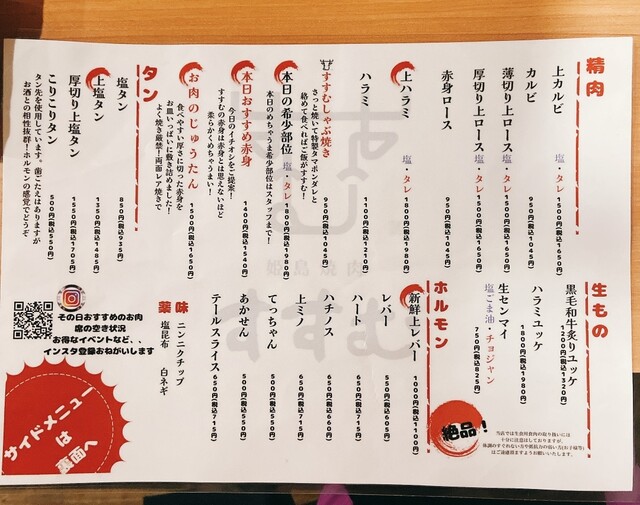 精肉
上カルビ 塩・タレ 1500円(税込1650円)
カルビ 950円(税込1045円)
薄切り上ロース 塩・タレ 1500円(税込1650円)
厚切り上ロース 塩・タレ 1500円(税込1650円)
赤身ロース 950円(税込1045円)
上ハラミ 塩・タレ 1800円(税込1980円)
ハラミ 1100円(税込1210円)
すすむしゃぶ焼き 950円(税込1045円)
さっと焼いて特製タマポンダレと
絡めて食べればご飯がすすむ!
本日の希少部位 塩・タレ 1800円(税込1980円)
本日のめちゃうま希少部位はスタッフまで!
本日おすすめ赤身 1400円(税込1540円)
今日のイチオシをご提案!
すすむの赤身は赤身とは思えないほど
柔らかくめちゃうまい!
お肉のじゅうたん 1500円(税込1650円)
食べやすい厚さに切った赤身を
お皿いっぱいに敷き詰めました!
よく焼き厳禁!両面レア焼きで
タン
塩タン 850円(税込935円)
上塩タン 1350円(税込1485円)
厚切り上塩タン 1550円(税込1705円)
こりこりタン 500円(税込550円)
タン先を使用しています。歯ごたえはありますが
お酒との相性抜群!ホルモンの感覚でどうぞ
生もの
黒毛和牛炙りユッケ
1200円(税込1320円)
ハラミユッケ
1800円(税込1980円)
生センマイ
塩ごま油・チョジャン
750円(税込825円)
絶品!
当店では生食用食肉の取り扱いには
十分に注意はしておりますが、
体調のすぐれない方や抵抗力の弱い方(お子様等)
はご遠慮頂ますようお願いいたします。
ホルモン
新鮮上レバー 1000円(税込1100円)
レバー 550円(税込605円)
ハート 650円(税込715円)
ハチノス 600円(税込660円)
上ミノ 650円(税込715円)
てっちゃん 500円(税込550円)
あかせん 500円(税込550円)
テールスライス 650円(税込715円)
薬味
ニンニクチップ
塩昆布 白ネギ
その日おすすめのお肉
席の空き状況
お得なイベントなど、、
インスタ登録おねがいします
サイドメニュー
は
裏面へ
姫島焼肉
すすむ